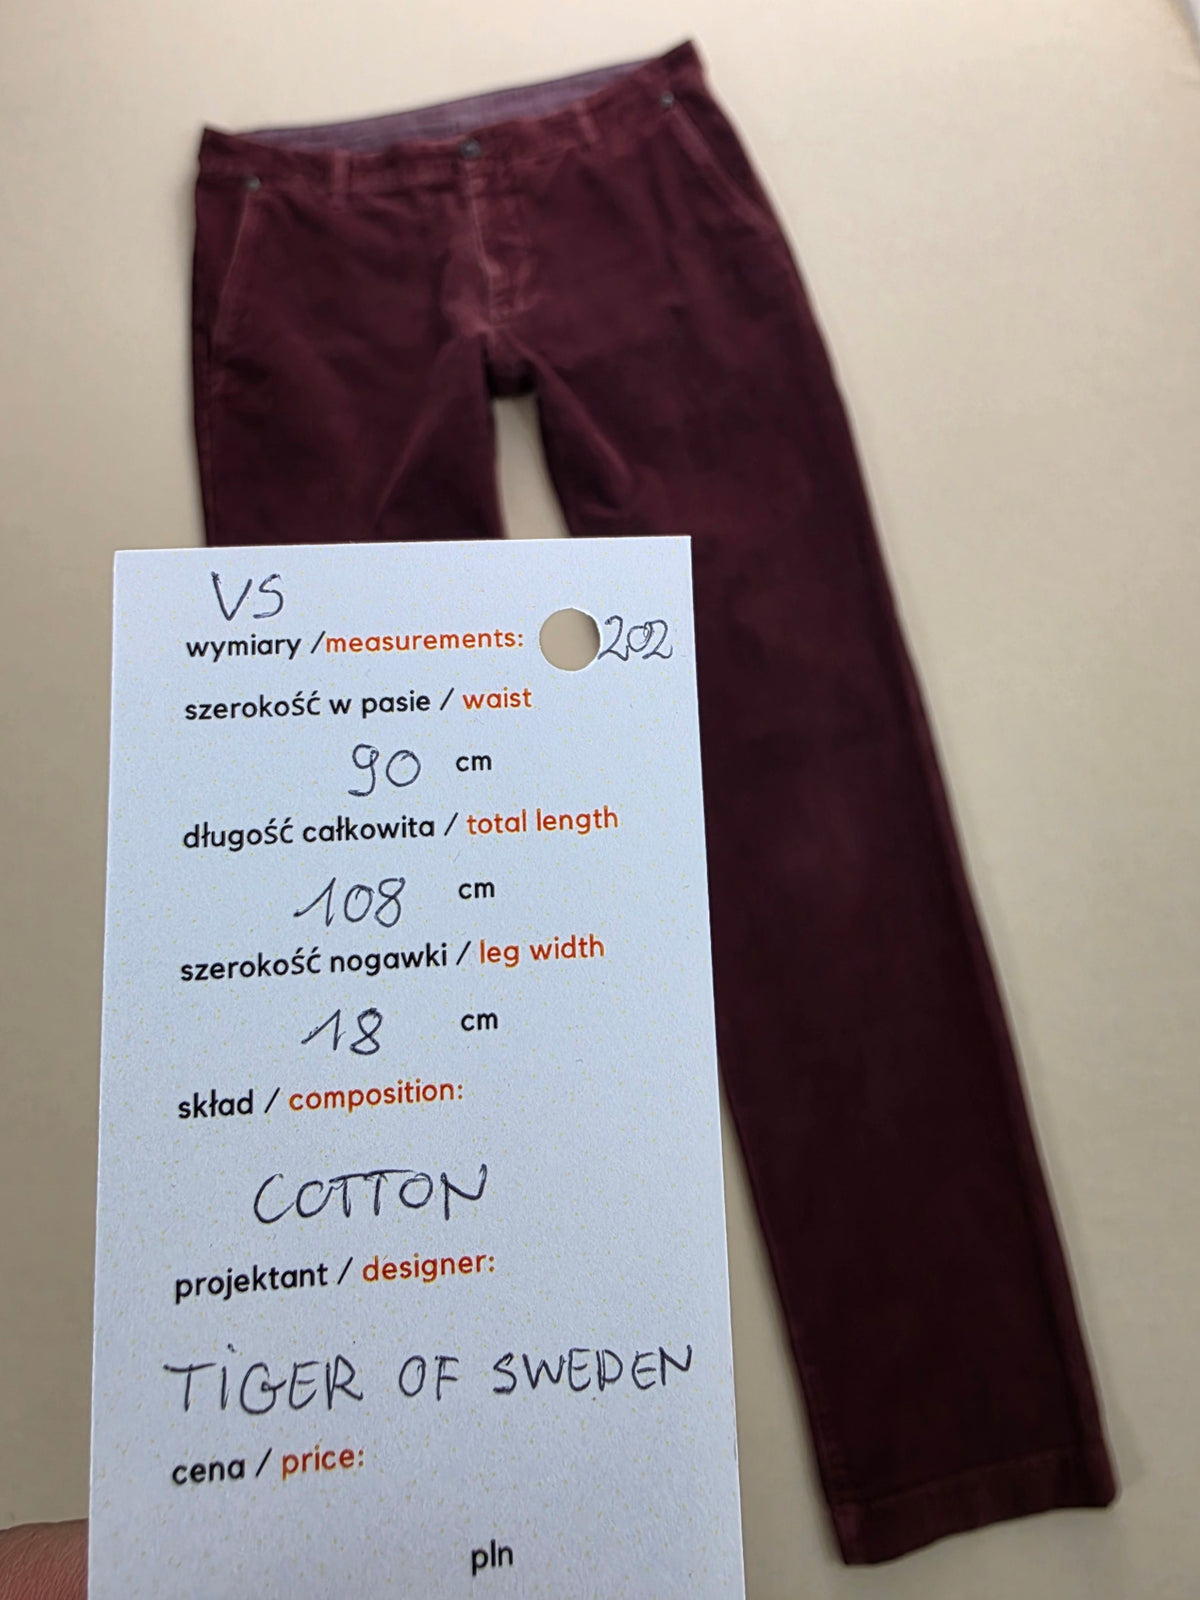 VS
wymiary /measurements: 202
szerokość w pasie / waist
90 cm
długość całkowita / total length
108 cm
szerokość nogawki / leg width
18 cm
skład / composition:
COTTON
projektant / designer:
TIGER OF SWEDEN
cena / price:
pln